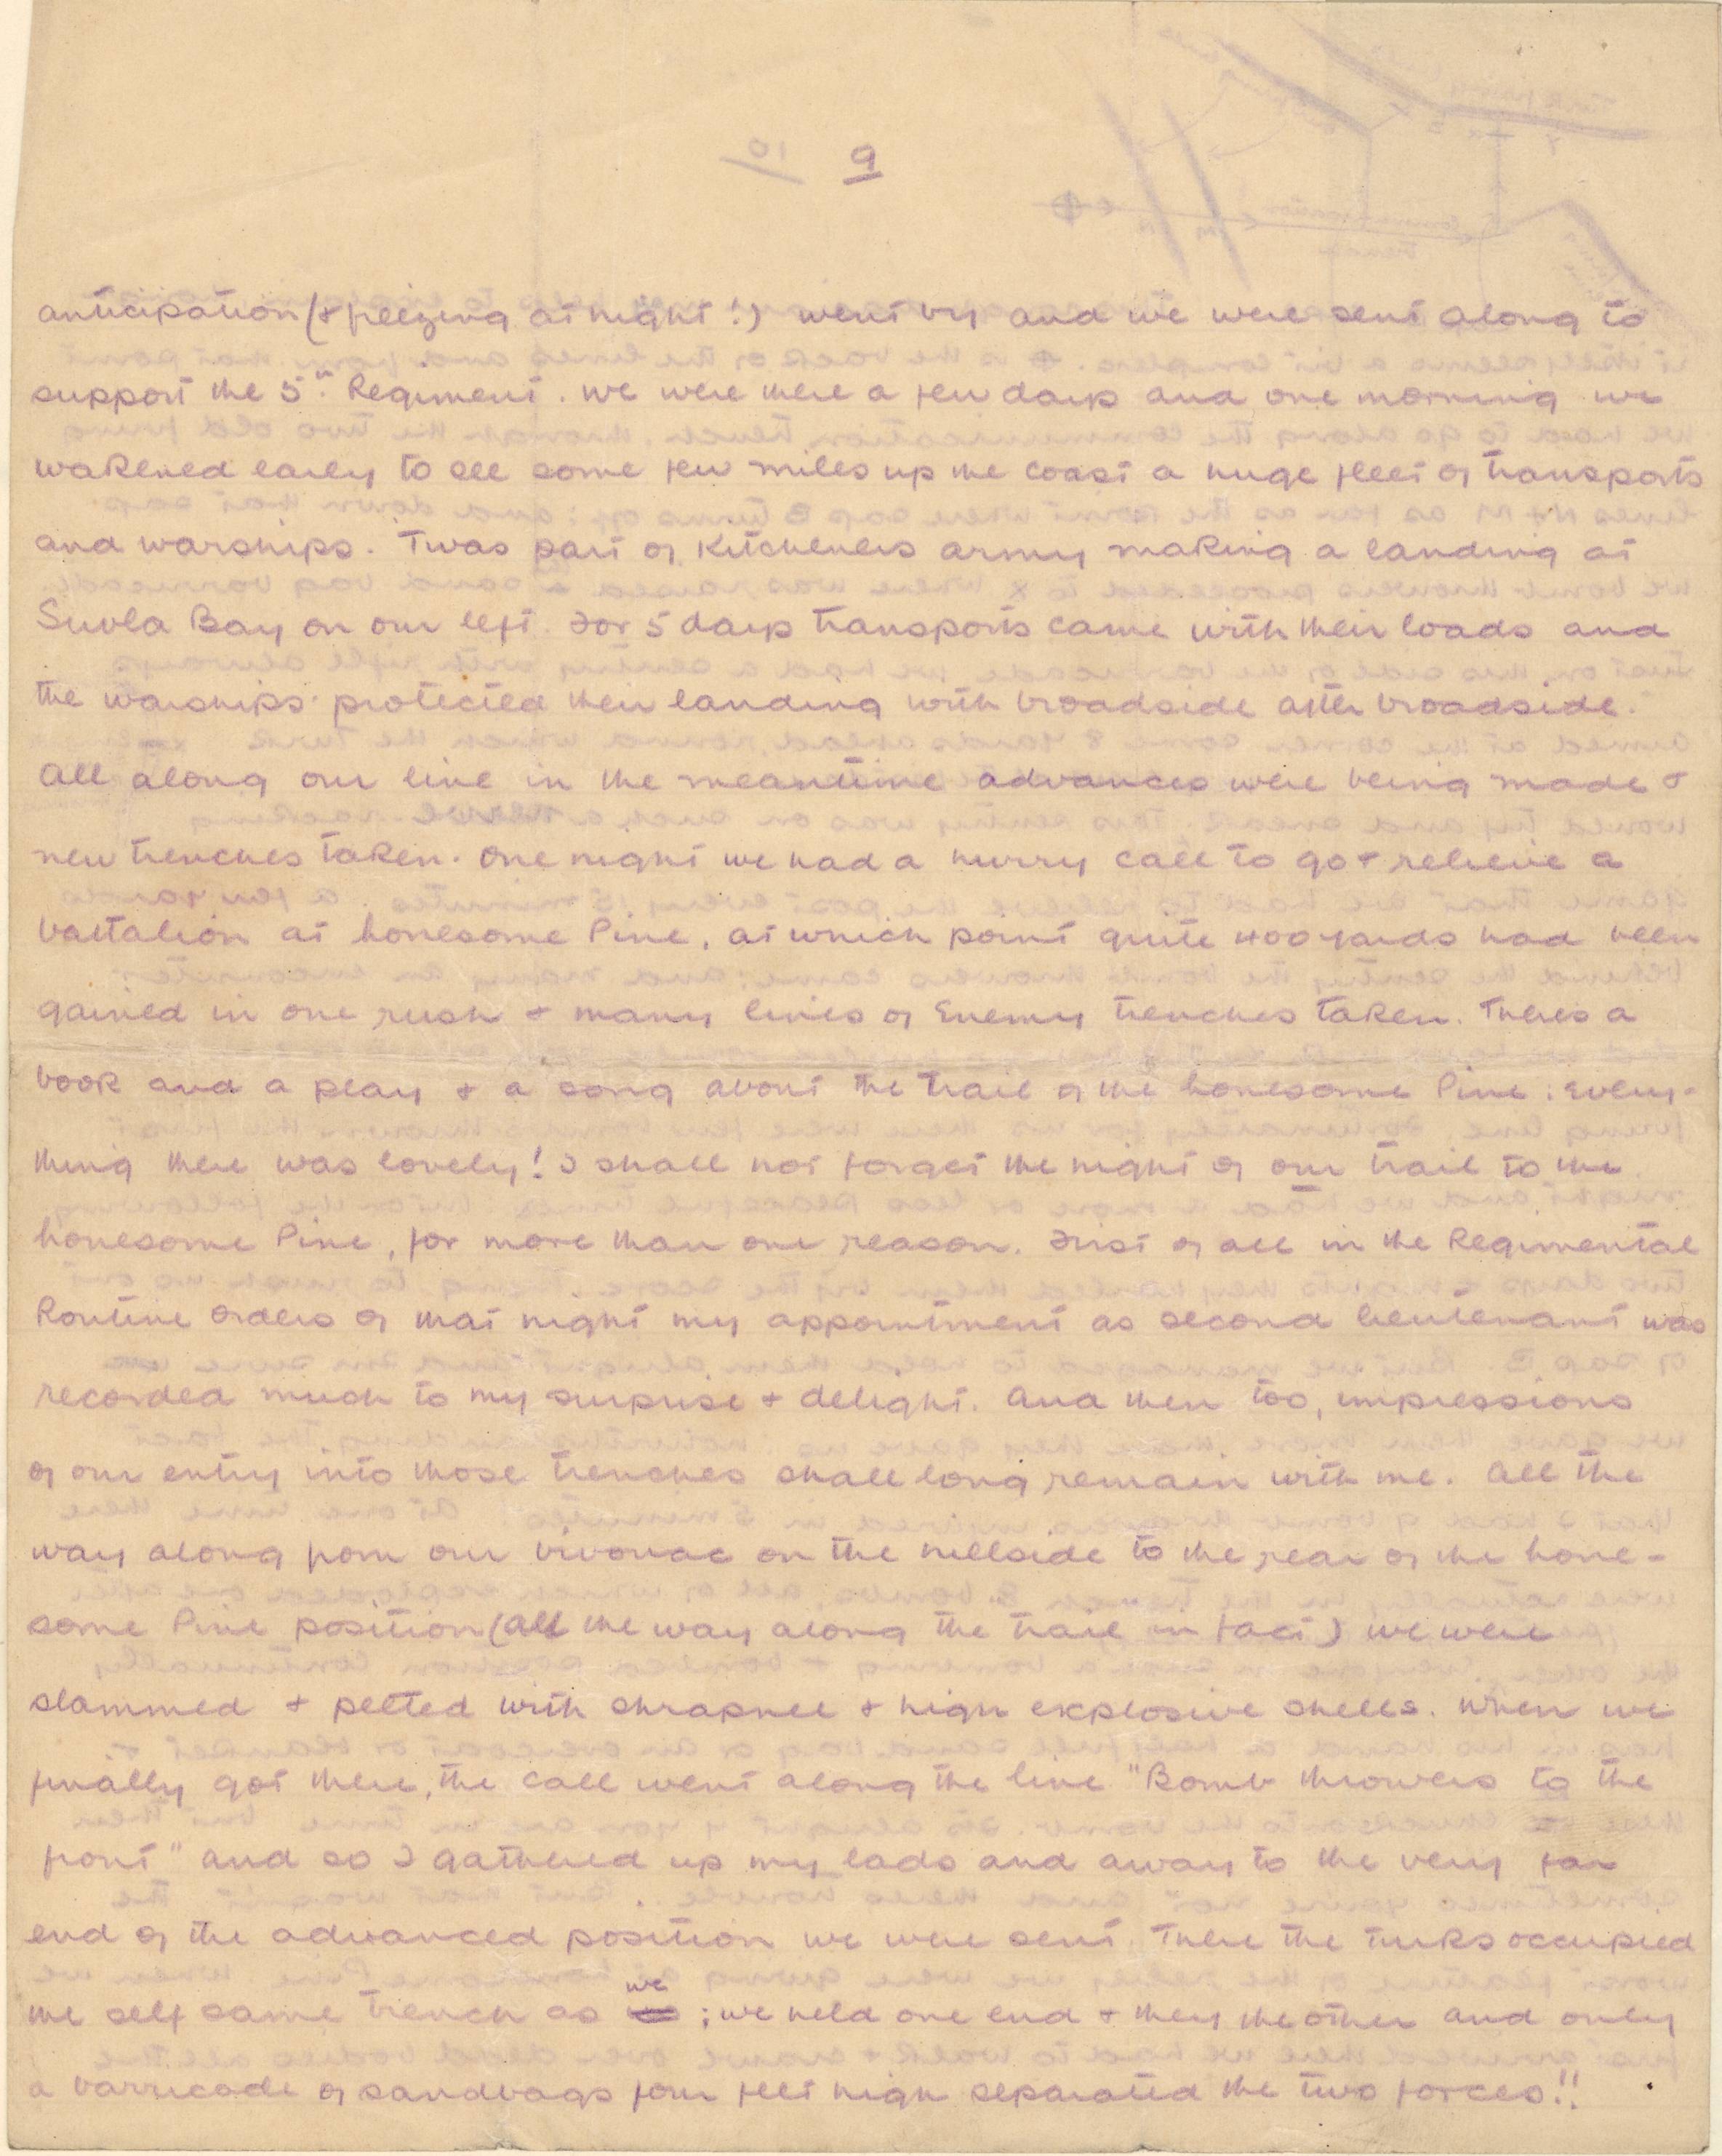 9
anticipation (& freezing at night!) went by and we were sent along to
support the 5th. Regiment. We were there a few days and one morning we
wakened early to see some few miles up the coast a huge fleet of transports
and warships. Twas part of Kitcheners army making a landing at
Suvla Bay on our left. For 5 days transports came with their loads and
the warships protected their landing with broadside after broadside.
All along our line in the meantime advances were being made &
new trenches taken. One night we had a hurry call to go & relieve a
battalion at Lonesome Pine, at which point quite 400 yards had been
gained in one rush & many lines of Enemy trenches taken. Theres a
book and a play & a song about the Trail of the Lonesome Pine: Every-
thing there was lovely! I shall not forget the night of our trail to the
Lonesome Pine, for more than one reason. First of all in the Regimental
Routine Orders of that night my appointment as second lieutenant was
recorded much to my surprise & delight. And then too, impressions
of our entry into those trenches shall long remain with me. All the
way along from our bivouac on the hillside to the rear of the Lone-
some Pine position (all the way along the trail in fact) we were
slammed & pelted with shrapnel & high explosive shells. When we
finally got there, the call went along the line "Bomb throwers to the
front" and so I gathered up my lads and away to the very far
end of the advanced position we were sent. There the Turks occupied
the self same trench as we; we held one end & they the other and only
a barricade of sandbags four feet high separated the two forces!!